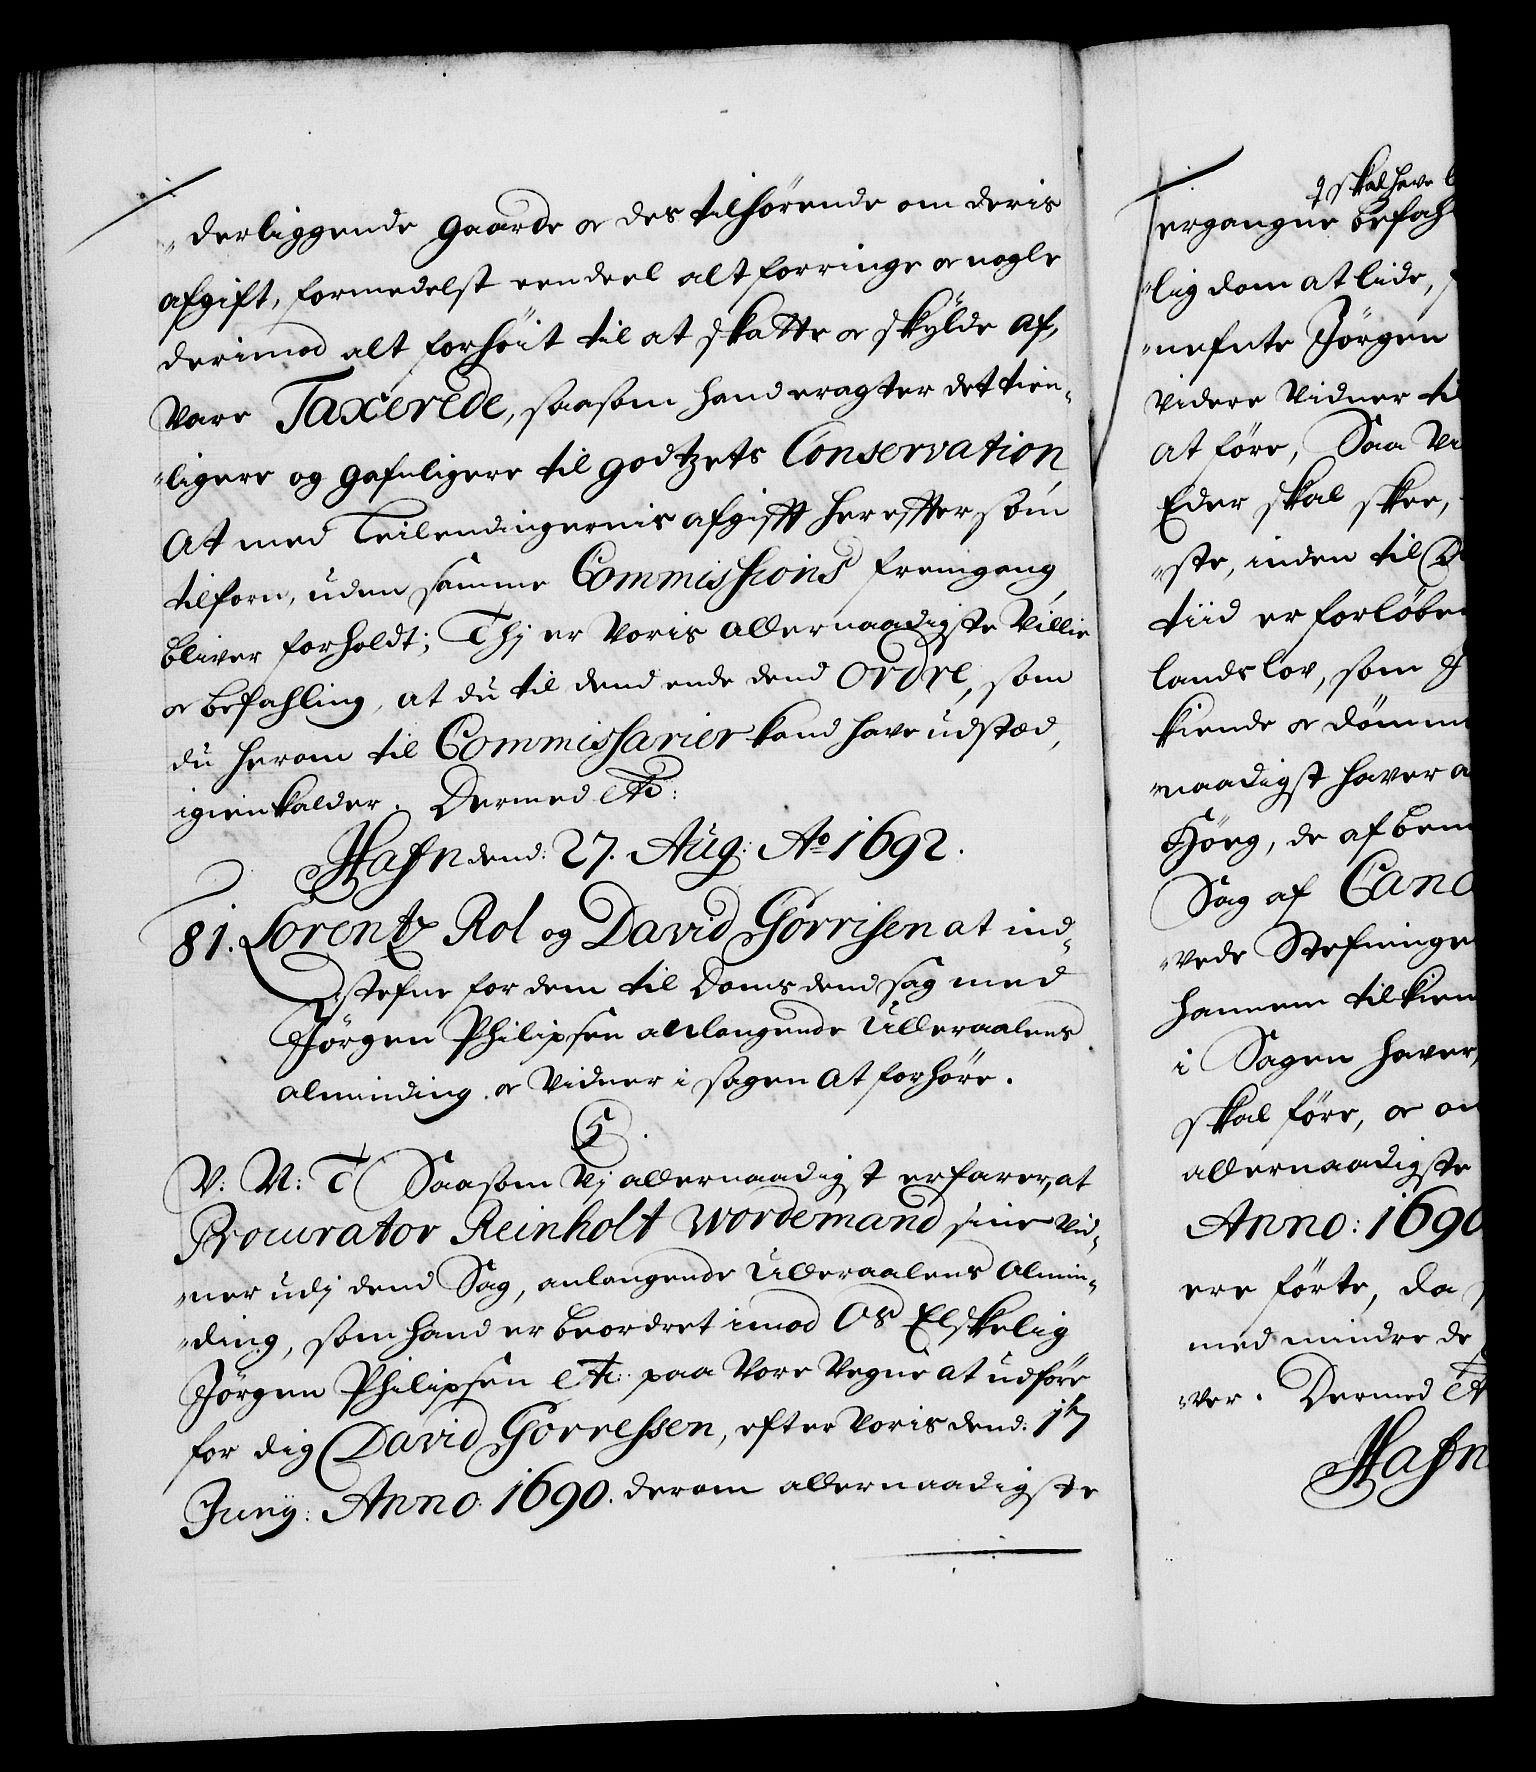 "derliggende gaarde oc des tilhörende om deris
afgift, formedelst een deel alt forringe oc nogle
derimod alt forhöit til at skatte oc skylde af,
vare Taxerede, saasom hand eragter det tien-
"ligere og gafnligere til godtzets Conservation
at med Leilendingernis afgifft her effter som
tilforn, uden samme Commissions fremgang
bliver forholdt; Thj er Voris allernaadigste Villie
oc befahling, at du til dend ende dend Ordre, som
du herom til Commissarier kand have udstæd,
igienkalder. Dermed etc:
Hafn dend: 27. Aug: Ao 1692.
81. Lorentz Rol og David Görrisen at ind-
stefne for dem til Doms dend sag med
Jörgen Philipsen anlangende Ulleraalens
alminding. oc Vidner i sagen at forhöre.
C5.
V: M: T Saasom Vj allernaadigst erfarer, at
Procurator Reinholt Wordemand sine vid-
"ner udj dend Sag, anlangende Ulleraalens almin-
"ding, som hand er beordret imod Os Elskelig
Jörgen Philipsen etc: paa Vore Vegne at udföre
for dig David Görressen, efter Voris dend: 17
Junij: Anno 1690. derom allernaadigste
skal have
ergangne befah
"lig dom at lide,
"nefnte Jörgen
videre Vidner til
at före, Saa Vi
Eder skal skee,
"ste, inden til
tiid er forlöben
lands lov, som
kiende oc dömme
"naadigst haver
Hörg, de af bem
Sag af Canc
"vede Stefninge
hannem tilkien
i Sagen haver,
skal före, oc
allernaadigste
Anno: 1690
ere förte, da
med mindre de
"ver. Dermed etc
Hafn